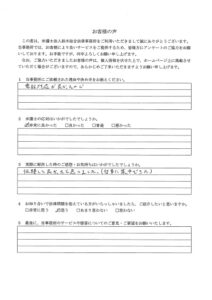 お客様の声
この度は、弁護士法人鈴木総合法律事務所をご利用いただきまして誠にありがとうございます。
当事務所では、お客様により良いサービスをご提供するため、皆様方にアンケートのご協力をお願い
しております。お手数ですが、何卒よろしくお願い申し上げます。
なお、ご協力いただきましたお客様の声は、個人情報を伏せた上で、ホームページ上に掲載させて
いただく場合がございますので、あらかじめご了承いただけますようお願い申し上げます。
1 当事務所にご依頼された理由や決め手をお教えください。
電話対応が良かったので
2 弁護士の応対はいかがでしたでしょうか。
非常に良かった 良かった 普通 悪かった
3 実際に依頼した時のご感想・お気持ちはいかがでしたでしょうか。
依頼して良かったと思いました。
4 お知り合いで法律問題を抱えている方がいらっしゃいましたら、ご紹介したいと思いますか。
非常に思う 思う あまり思わない 思わない
5 最後に、当事務所のサービスや接客についてのご意見・ご要望をお願いいたします。